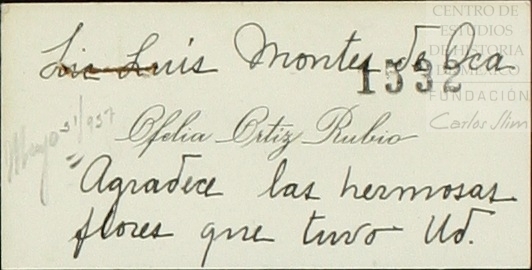 Lic Luis Montes de Oca
1532
CENTRO DE
ESTUDIOS
DE HISTORIA
DE MÉXICO
FUNDACIÓN
Carlos Slim
Mayo 31/937
Ofelia Ortiz Rubio
Agradece las hermosas
flores que tuvo Ud.